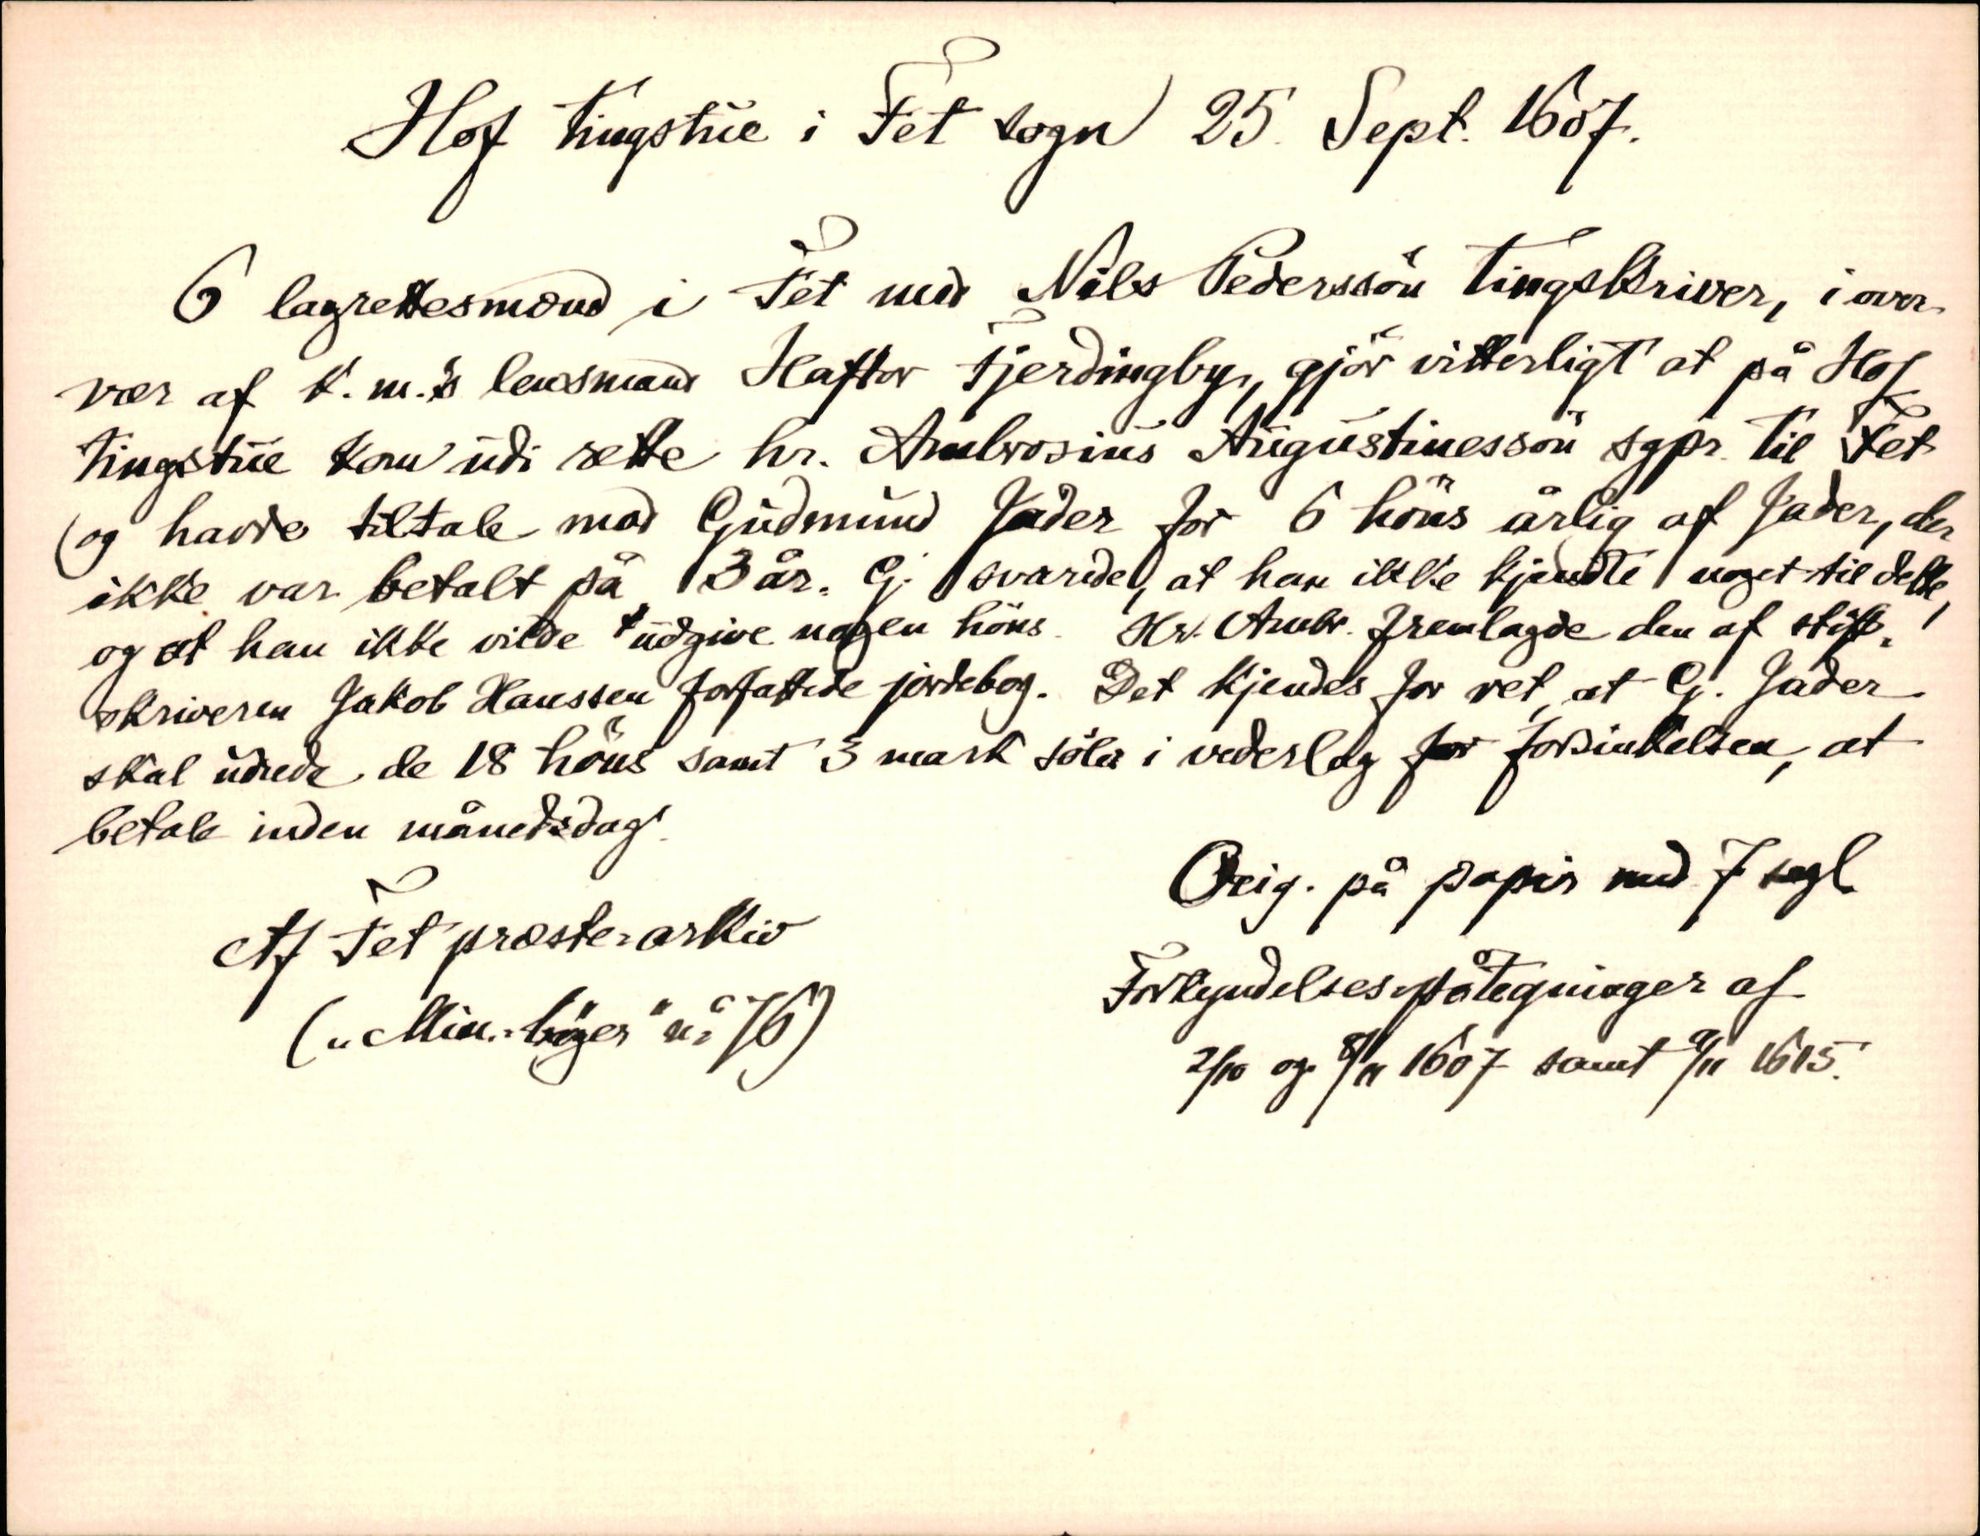 Hof tingstue i Fet sogn 25. Sept. 1607.
6 lagrettesmænd i Fet med Nils Pederssön tingskriver, i over-
vær af k. m.s lensmand Haftor Fjerdingby, gjör vitterligt at på Hof
tingstue kom udi rette hr. Ambrosius Augustinessön sgpr. til Fet
og havde tiltale mod Gudmund Jader for 6 höns årlig af Jader, der
ikke var betalt på 3 år. G. svarede, at han ikke kjendte noget til dette,
og at han ikke vilde udgive nogen höns. Hr. Ambr. fremlagde den af stift-
skriveren Jakob Hanssen forfattede jordebog. Det kjendes for ret, at G. Jader
skal udrede de 18 höns samt 3 mark sölv i vederlag for forsinkelsen, at
betale inden månedsdag.
Orig. på papir med 7 segl
Af Fet præste-arkiv
Forkyndelses-påtegninger af
(„Min.-bøger" nº 76)
2/10 og 8/11 1607 samt 9/11 1615.